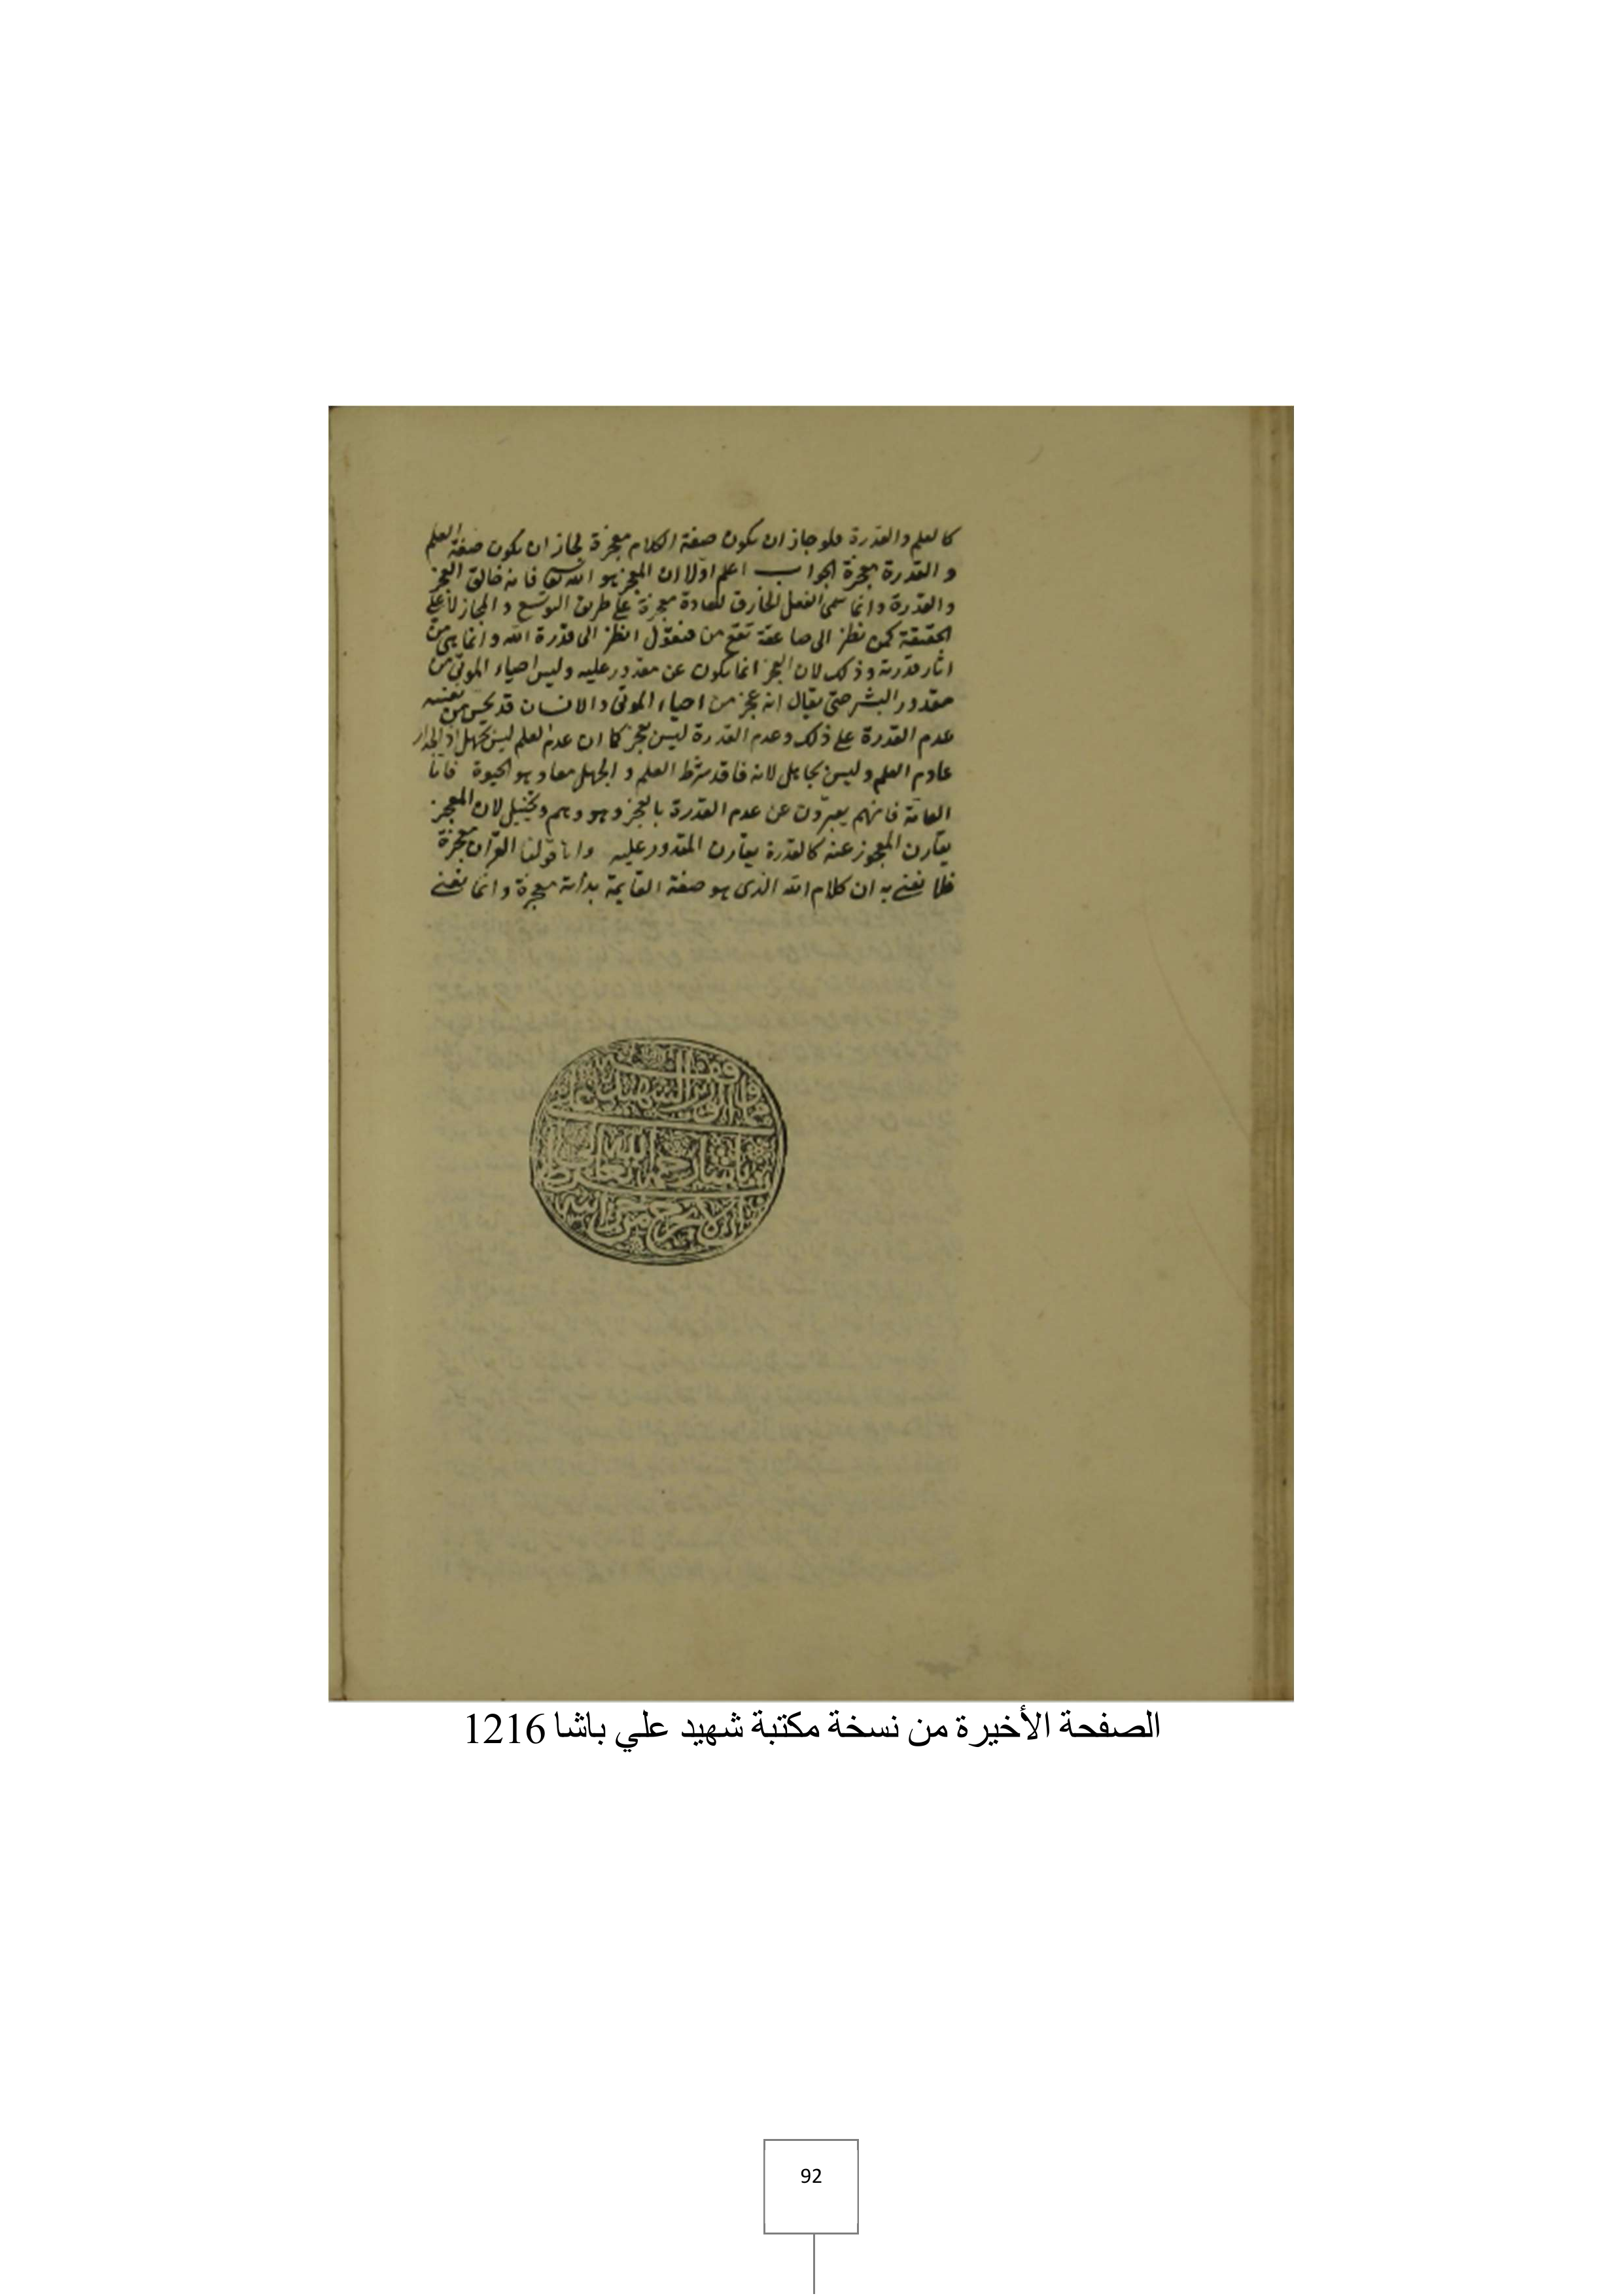 كالعلم والقدرة فلو جاز ان يكون صفة الكلام معجزة لجاز ان يكون صفة العلم
و القدرة معجزة الجواب اعلم اولا ان المعجز هو الله تعا فانه خالق العجز
والقدرة وانما سمى الفعل الخارق للعادة معجزة على طريق التوسع و المجاز لا على
الحقيقة كمن نظر الى صاعقة تقع من فنقول انظر الى قدرة الله وانما هى من
اثار قدرته وذلك لان العجز انما يكون عن مقدور عليه وليس احياء الموتى من
مقدور البشر حتى يقال انه عجز من احياء الموتى والانسان قد يحس من نفسه
عدم القدرة على ذلك وعدم القدرة ليس بعجز كما ان عدم العلم ليس بجهل اذ الجدار
عادم العلم وليس بجاهل لانه فاقد شرط العلم و الجهل معا وهو الحيوة فاما
العامة فانهم يعبرون عن عدم القدرة بالعجز وهو وهم وتخييل لان المعجز
يقارن المعجوز عنه كالقدرة يقارن المقدور عليه واما قولنا القرآن معجزة
فلا نعنى به ان كلام الله الذى هو صفة القايمة بذاته معجزة وانما نعنى
الشهيد على
باشا رحمهما الله تعالى
الصفحة الأخيرة من نسخة مكتبة شهيد علي باشا 1216
92